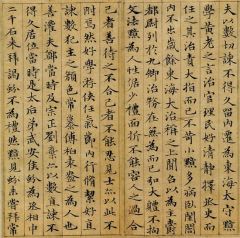 夫以數切諫不得久留內遷為東海太守黯
學黃老之言治官理民好清靜擇丞史而
任之其治責大指而已不苛小黯多病臥閨閤
內不出歲餘東海大治稱之上聞召以為主爵
都尉列於九卿治務在無為而已弘大體不拘
文法黯為人性倨少禮面折不能容人之過合
己者善待之不合己者不能忍見士亦以此不
附焉然好學游俠任氣節內行脩絜好直
諫數犯主之顏色常慕傅柏袁盎之為人也
善灌夫鄭當時及宗正劉棄亦以數直諫不
得久居位當時太后弟武安侯蚡為丞相中
二千石來拜謁蚡不為禮然黯見蚡未嘗拜常